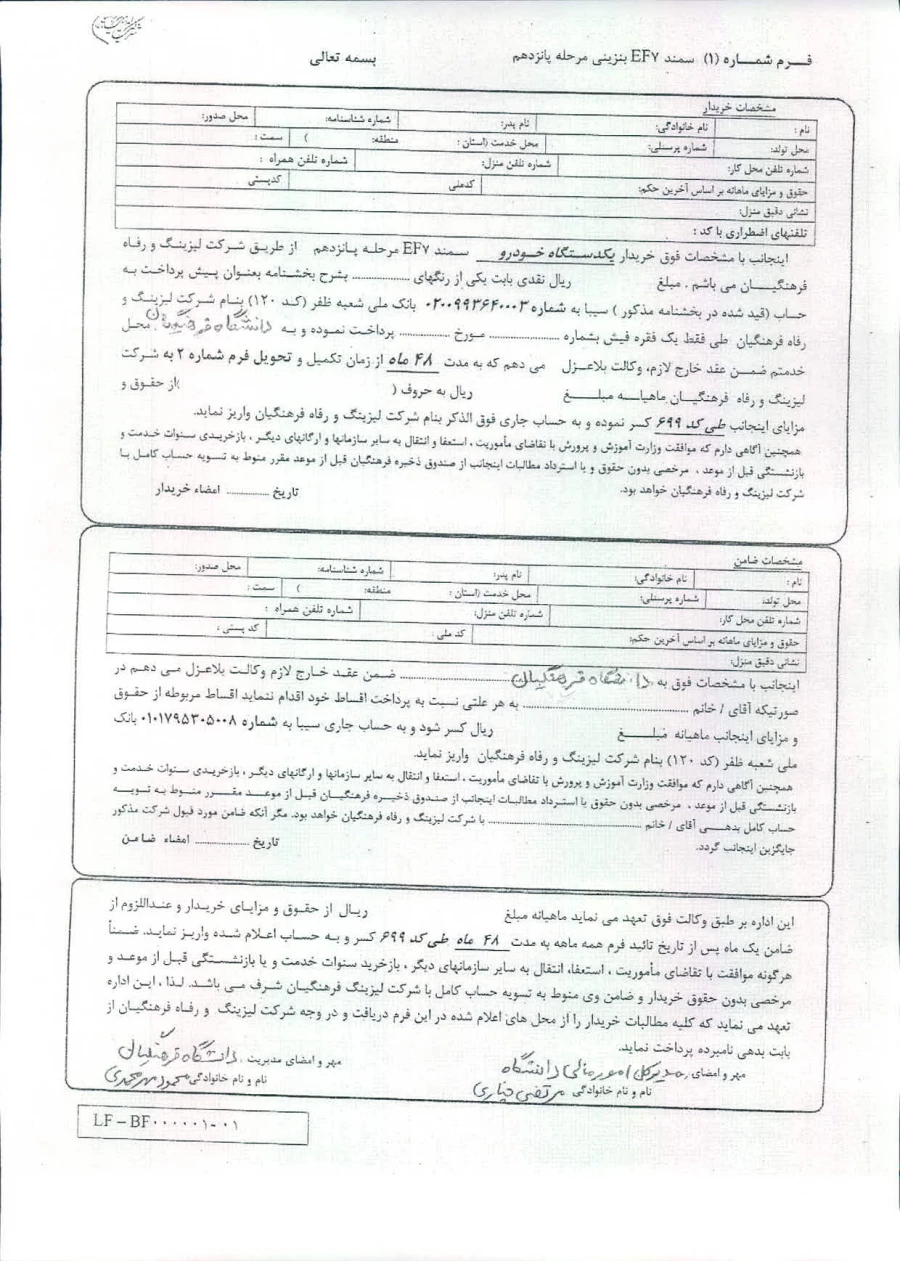 فـرم شمـــاره (۱) سمند EF۷ بنزینی مرحله پانزدهم
بسمه تعالی
مشخصات خریدار
نام : نام خانوادگی: نام پدر: شماره شناسنامه: محل صدور:
محل تولد: شماره پرسنلی: محل خدمت (استان : منطقه: ) سمت :
شماره تلفن محل کار: شماره تلفن منزل: شماره تلفن همراه :
حقوق و مزایای ماهانه بر اساس آخرین حکم: کدملی کدپستی
نشانی دقیق منزل:
تلفنهای اضطراری با کد :
اینجانب با مشخصات فوق خریدار یکدستگاه خودرو سمند EF۷ مرحله پانزدهم از طریق شرکت لیزینگ و رفاه
فرهنگیـــان می باشم . مبلغ ریال نقدی بابت یکی از رنگهای .............. بشرح بخشنامه بعنوان پیش پرداخت به
حساب (قید شده در بخشنامه مذکور ) سیبا به شماره ۰۲۰۰۹۹۳۶۴۰۰۰۳ بانک ملی شعبه ظفر (کـد ۱۲۰) بنام شـرکت لیزینـگ و
رفاه فرهنگیان طی فقط یک فقره فیش بشماره .................. مـورخ .............. پرداخت نموده و بـه دانشگاه فرهنگیان محل
خدمتم ضمـــن عقد خارج لازم، وکالت بلاعـزل می دهم که به مدت ۴۸ ماه از زمان تکمیل و تحویل فرم شماره ۲ به شرکت
لیزینگ و رفاه فرهنگیـان ماهیانـه مبلـــغ ریال به حروف ( )از حقوق و
مزایای اینجانب طی کد ۶۹۹ کسر نموده و به حساب جاری فوق الذکر بنام شرکت لیزینگ و رفاه فرهنگیان واریز نماید.
همچنین آگاهی دارم که موافقت وزارت آموزش و پرورش با تقاضای مأموریت ، استعفا و انتقال به سایر سازمانها و ارگانهای دیگـر ، بازخریـدی سنـوات خدمـت و
بازنشستگی قبل از موعد ، مرخصی بدون حقوق و یا استرداد مطالبات اینجانب از صندوق ذخیره فرهنگیان قبل از موعد مقرر منوط به تسویه حساب کامـل بـا
شرکت لیزینگ و رفاه فرهنگیان خواهد بود.
تاریخ ............. امضاء خریدار
مشخصات ضامن
نام : نام خانوادگی: نام پدر: شماره شناسنامه: محل صدور:
محل تولد: شماره پرسنلی: محل خدمت (استان : منطقه: ) سمت :
شماره تلفن محل کار: شماره تلفن منزل: شماره تلفن همراه :
حقوق و مزایای ماهانه بر اساس آخرین حکم: کد ملی : کد پستی :
نشانی دقیق منزل:
اینجانب با مشخصات فوق به دانشگاه فرهنگیان .................. ضمـن عقـد خـارج لازم وکالـت بلاعـزل مـی دهـم در
صورتیکه آقای / خانم .................................. به هر علتی نسبت به پرداخت اقساط خود اقدام ننماید اقساط مربوطه از حقوق
و مزایای اینجانب ماهیانه مبلـــغ ریال کسر شود و به حساب جاری سیبا به شماره ۰۱۰۱۷۹۵۳۰۵۰۰۸ بانک
ملی شعبه ظفر (کد ۱۲۰) بنام شرکت لیزینگ و رفاه فرهنگیان واریز نماید.
همچنین آگاهی دارم که موافقت وزارت آموزش و پرورش با تقاضای مأموریت ، استعفا و انتقال به سایر سازمانها و ارگانهای دیگـر ، بازخریـدی سنـوات خدمـت و
بازنشستگی قبل از موعد ، مرخصی بدون حقوق یا استرداد مطالبات اینجانب از صندوق ذخیـره فرهنگیــان قبـل از موعـد مقـــرر منـوط بـه تسویـه
حساب کامل بدهـــی آقای / خانم .................................. با شرکت لیزینگ و رفاه فرهنگیان خواهد بود. مگر آنکه ضامن مورد قبول شرکت مذکور
جایگزین اینجانب گردد.
تاریخ ............. امضاء ضامن
این اداره بر طبق وکالت فوق تعهد می نماید ماهیانه مبلغ ریـال از حقـوق و مزایـای خریـدار و عنـداللزوم از
ضامن یک ماه پس از تاریخ تائید فرم همه ماهه به مدت ۴۸ ماه طی کد ۶۹۹ کسر و بـه حساب اعـلام شـده واریـز نمایـد. ضمنـأ
هرگونه موافقت با تقاضای مأموریت ، استعفا، انتقال به سایر سازمانهای دیگر ، بازخرید سنوات خدمت و یا بازنشستگی قبـل از موعـد و
مرخصی بدون حقوق خریدار و ضامن وی منوط به تسویه حساب کامل با شرکت لیزینگ فرهنگیـان شـرف مـی باشـد. لـذا ، ایـن اداره
تعهد می نماید که کلیه مطالبات خریدار را از محل های اعلام شده در این فرم دریافت و در وجه شرکت لیزینگ و رفـاه فرهنگیـان از
بابت بدهی نامبرده پرداخت نماید.
مهر و امضای مدیرکل امور مالی دانشگاه
نام و نام خانوادگی مرتضی
مهر و امضای مدیریت ، دانشگاه فرهنگیان
نام و نام خانوادگی محمود مهرمحمدی
LF – BF۰۰۰۰۰۰۱-۰۱